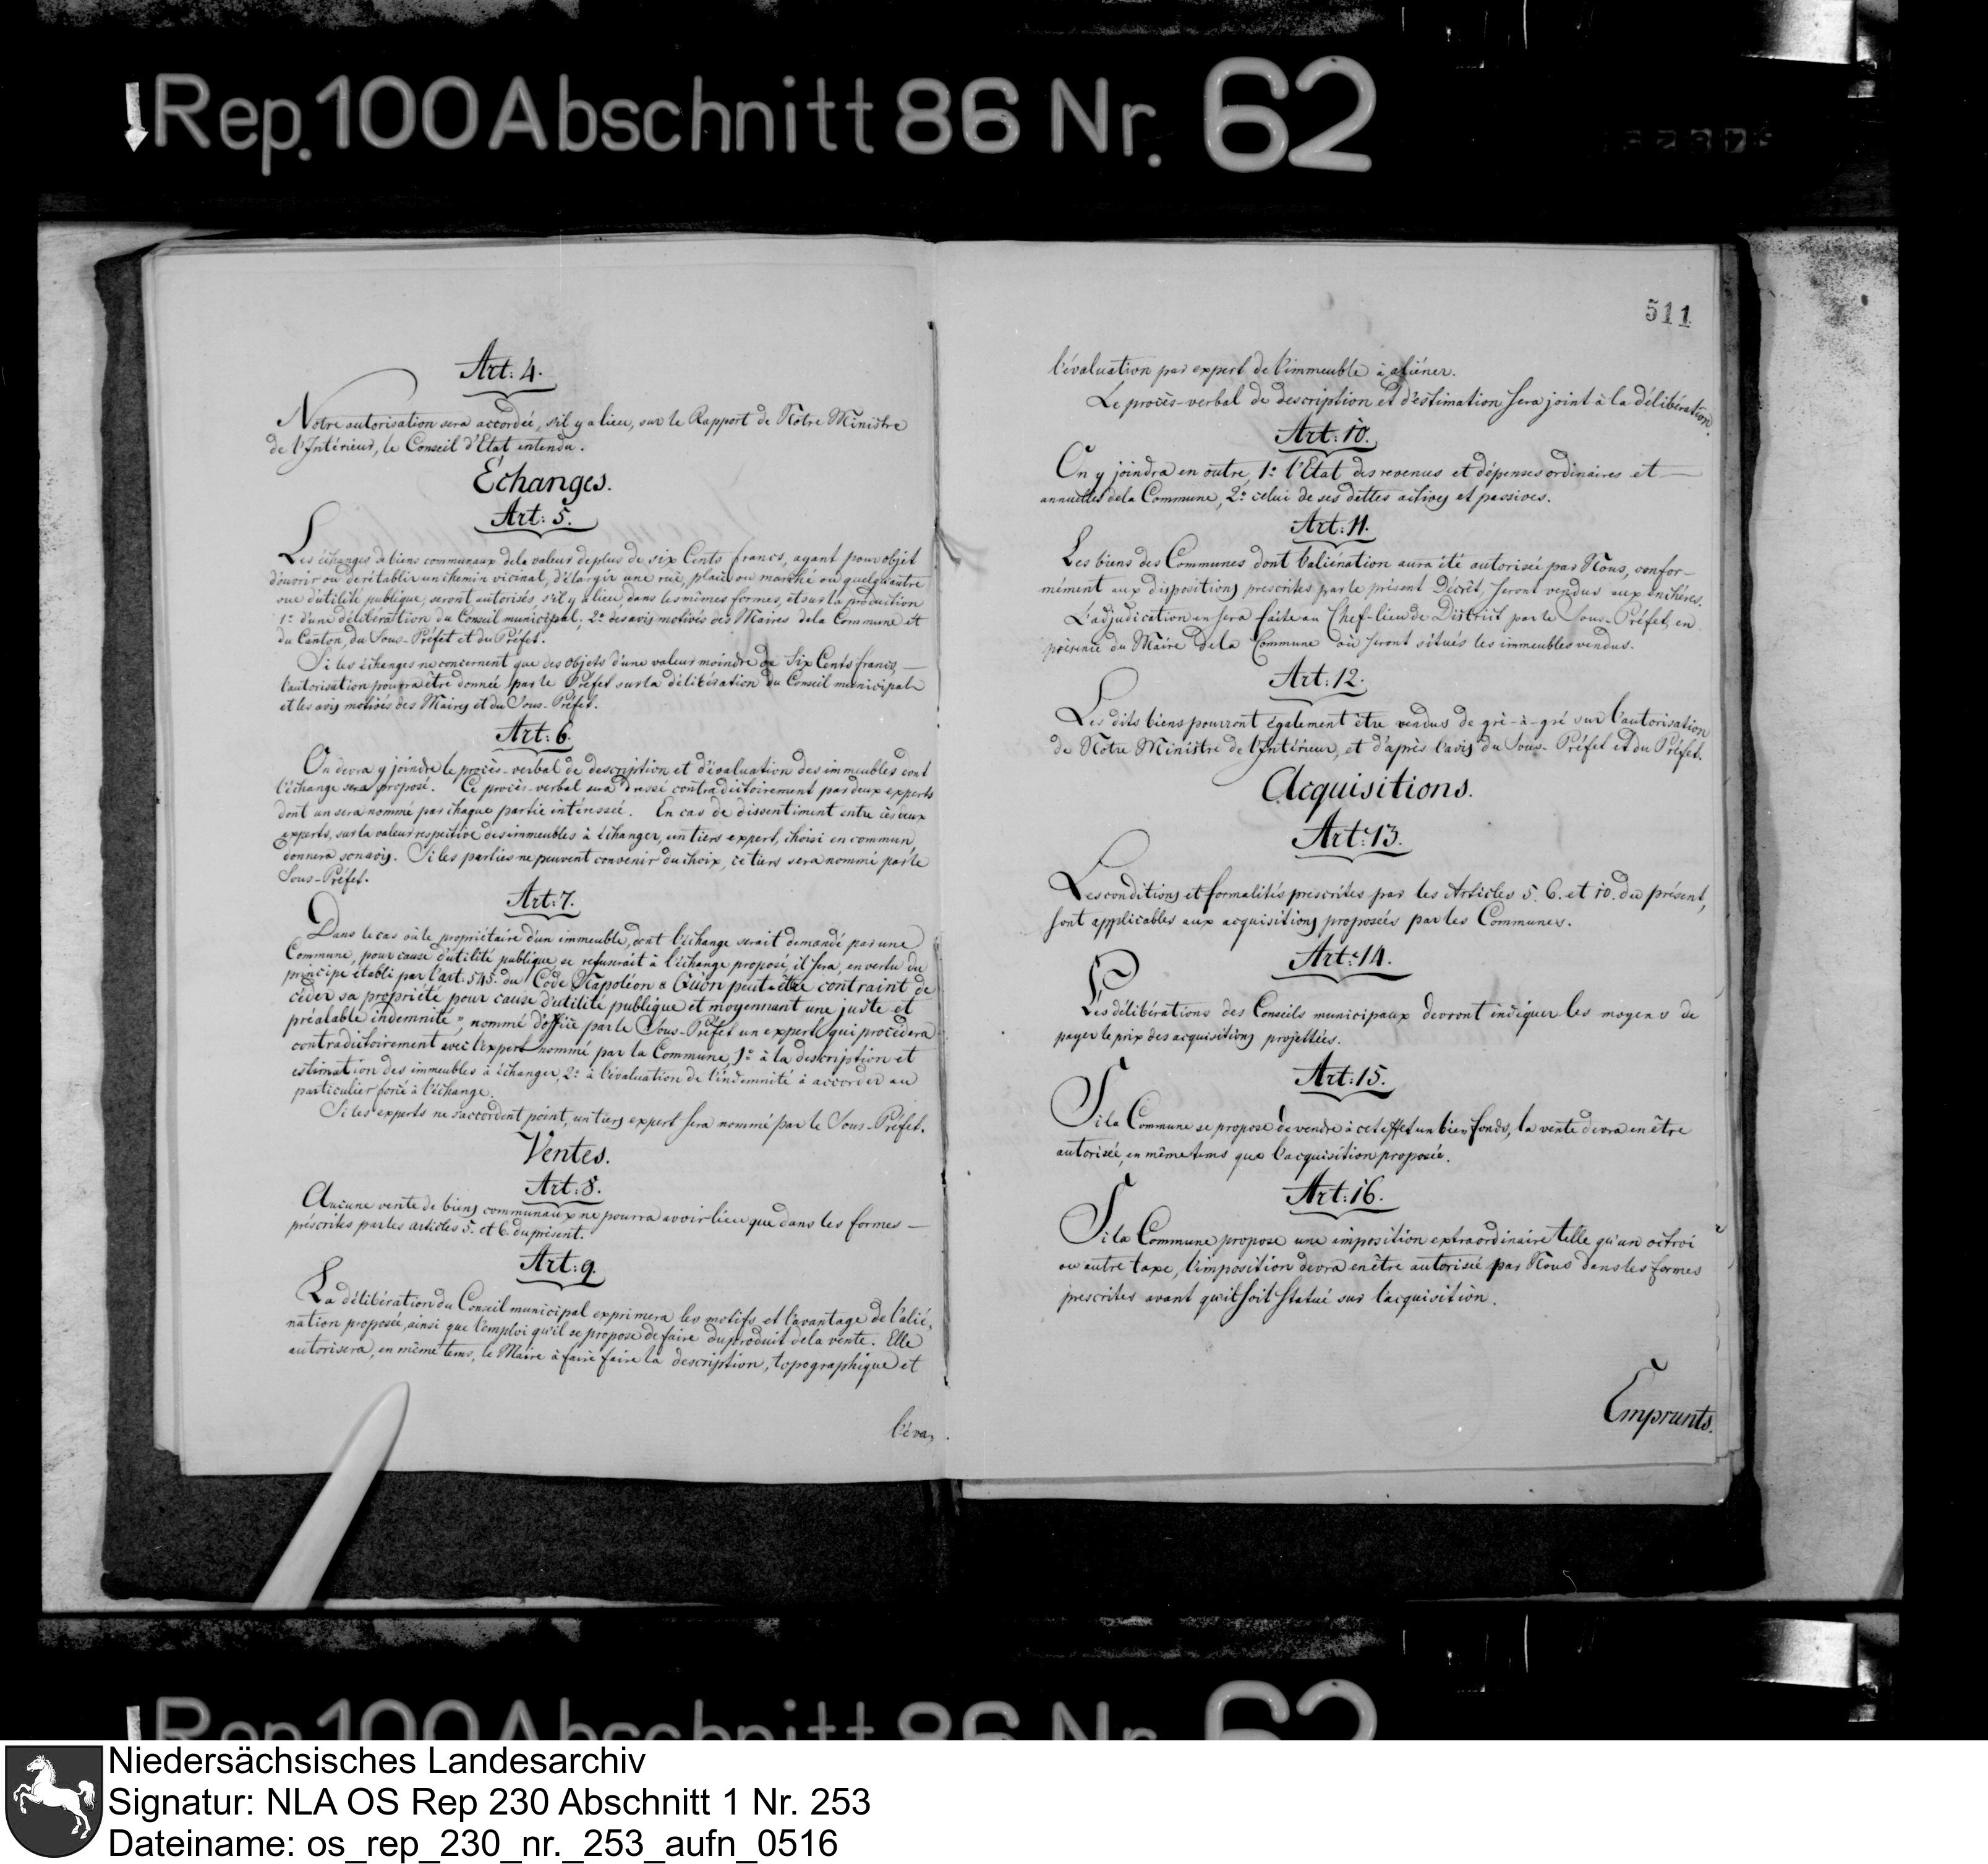 Rep. 100 Abschnitt 86 Nr. 62
Art: 4.
Notre autorisation sera accordée, s'il y a lieu, sur le Rapport de Notre Ministre
de l'Intérieur, le Conseil d'Etat entendu.
Échanges.
Art: 5.
Les échanges de biens communaux de la valeur de plus de six Cents francs, ayant pour objet
d'ouvrir ou de rétablir un chemin vicinal, d'élargir une rue, place ou marché ou quelqu'autre
vue d'utilité publique, seront autorisés, s'il y a lieu, dans les mêmes formes, et sur la production
1.° d'une délibération du Conseil municipal; 2.° des avis motivés des Maires de la Commune et
du Canton, du Sous-Préfet et du Préfet.
Si les échanges ne concernent que des objets d'une valeur moindre de Six Cents francs,
l'autorisation pourra être donnée par le Préfet sur la délibération du Conseil municipal
et les avis motivés des Maires et du Sous-Préfet.
Art: 6.
On devra y joindre le procès-verbal de description et d'évaluation des immeubles dont
l'échange sera proposé. Ce procès-verbal sera dressé contradictoirement par deux experts
dont un sera nommé par chaque partie intéressée. En cas de dissentiment entre ces deux
experts, sur la valeur respective des immeubles à échanger, un tiers expert, choisi en commun,
donnera son avis. Si les parties ne peuvent convenir du choix, ce tiers sera nommé par le
Sous-Préfet.
Art: 7.
Dans le cas où le propriétaire d'un immeuble, dont l'échange serait demandé par une
Commune, pour cause d'utilité publique se refuserait à l'échange proposé, il sera, en vertu du
principe établi par l'art. 545. du Code Napoléon « Qu'on peut être contraint de
céder sa propriété pour cause d'utilité publique et moyennant une juste et
préalable indemnité », nommé d'office par le Sous-Préfet un expert qui procédera
contradictoirement avec l'expert nommé par la Commune, 1.° à la description et
estimation des immeubles à échanger, 2.° à l'évaluation de l'indemnité à accorder au
particulier forcé à l'échange.
Si les experts ne s'accordent point, un tiers expert sera nommé par le Sous-Préfet.
Ventes.
Art: 8.
Aucune vente de biens communaux ne pourra avoir lieu que dans les formes
préscrites par les articles 5. et 6. du présent.
Art: 9.
La délibération du Conseil municipal exprimera les motifs et l'avantage de l'alié-
nation proposée, ainsi que l'emploi qu'il se propose de faire du produit de la vente. Elle
autorisera, en même tems, le Maire à faire faire la description, topographique et
l'éva-
511
l'évaluation par expert de l'immeuble à aliéner.
Le procès-verbal de description et d'éstimation sera joint à la délibération.
Art: 10.
On y joindra en outre, 1.° l'Etat des revenus et dépenses ordinaires et
annuelles de la Commune, 2.° celui de ses dettes actives et passives.
Art: 11.
Les biens des Communes dont l'aliénation aura été autorisée par Nous, confor-
mément aux dispositions prescrites par le présent Décrèt, seront vendus aux enchères.
L'adjudication en sera faite au Chef-lieu de District par le Sous-Préfet, en
présence du Maire de la Commune où seront situés les immeubles vendus.
Art: 12.
Les dits biens pourront également être vendus de gré-à-gré sur l'autorisation
de Notre Ministre de l'Intérieur, et d'après l'avis du Sous-Préfet et du Préfet.
Acquisitions.
Art: 13.
Les conditions et formalités prescrites par les Articles 5. 6. et 10. du présent,
sont applicables aux acquisitions proposées par les Communes.
Art: 14.
Les délibérations des Conseils municipaux devront indiquer les moyens de
payer le prix des acquisitions projettées.
Art: 15.
Si la Commune se propose de vendre à cet effet un bien fonds, la vente devra en être
autorisée, en même tems que l'acquisition proposée.
Art: 16.
Si la Commune propose une imposition extraordinaire telle qu'un octroi
ou autre taxe, l'imposition devra en être autorisée par Nous dans les formes
prescrites avant qu'il soit statué sur l'acquisition.
Emprunts.
Rep. 100 Abschnitt 86 Nr. 62
Niedersächsisches Landesarchiv
Signatur: NLA OS Rep 230 Abschnitt 1 Nr. 253
Dateiname: os_rep_230_nr._253_aufn_0516